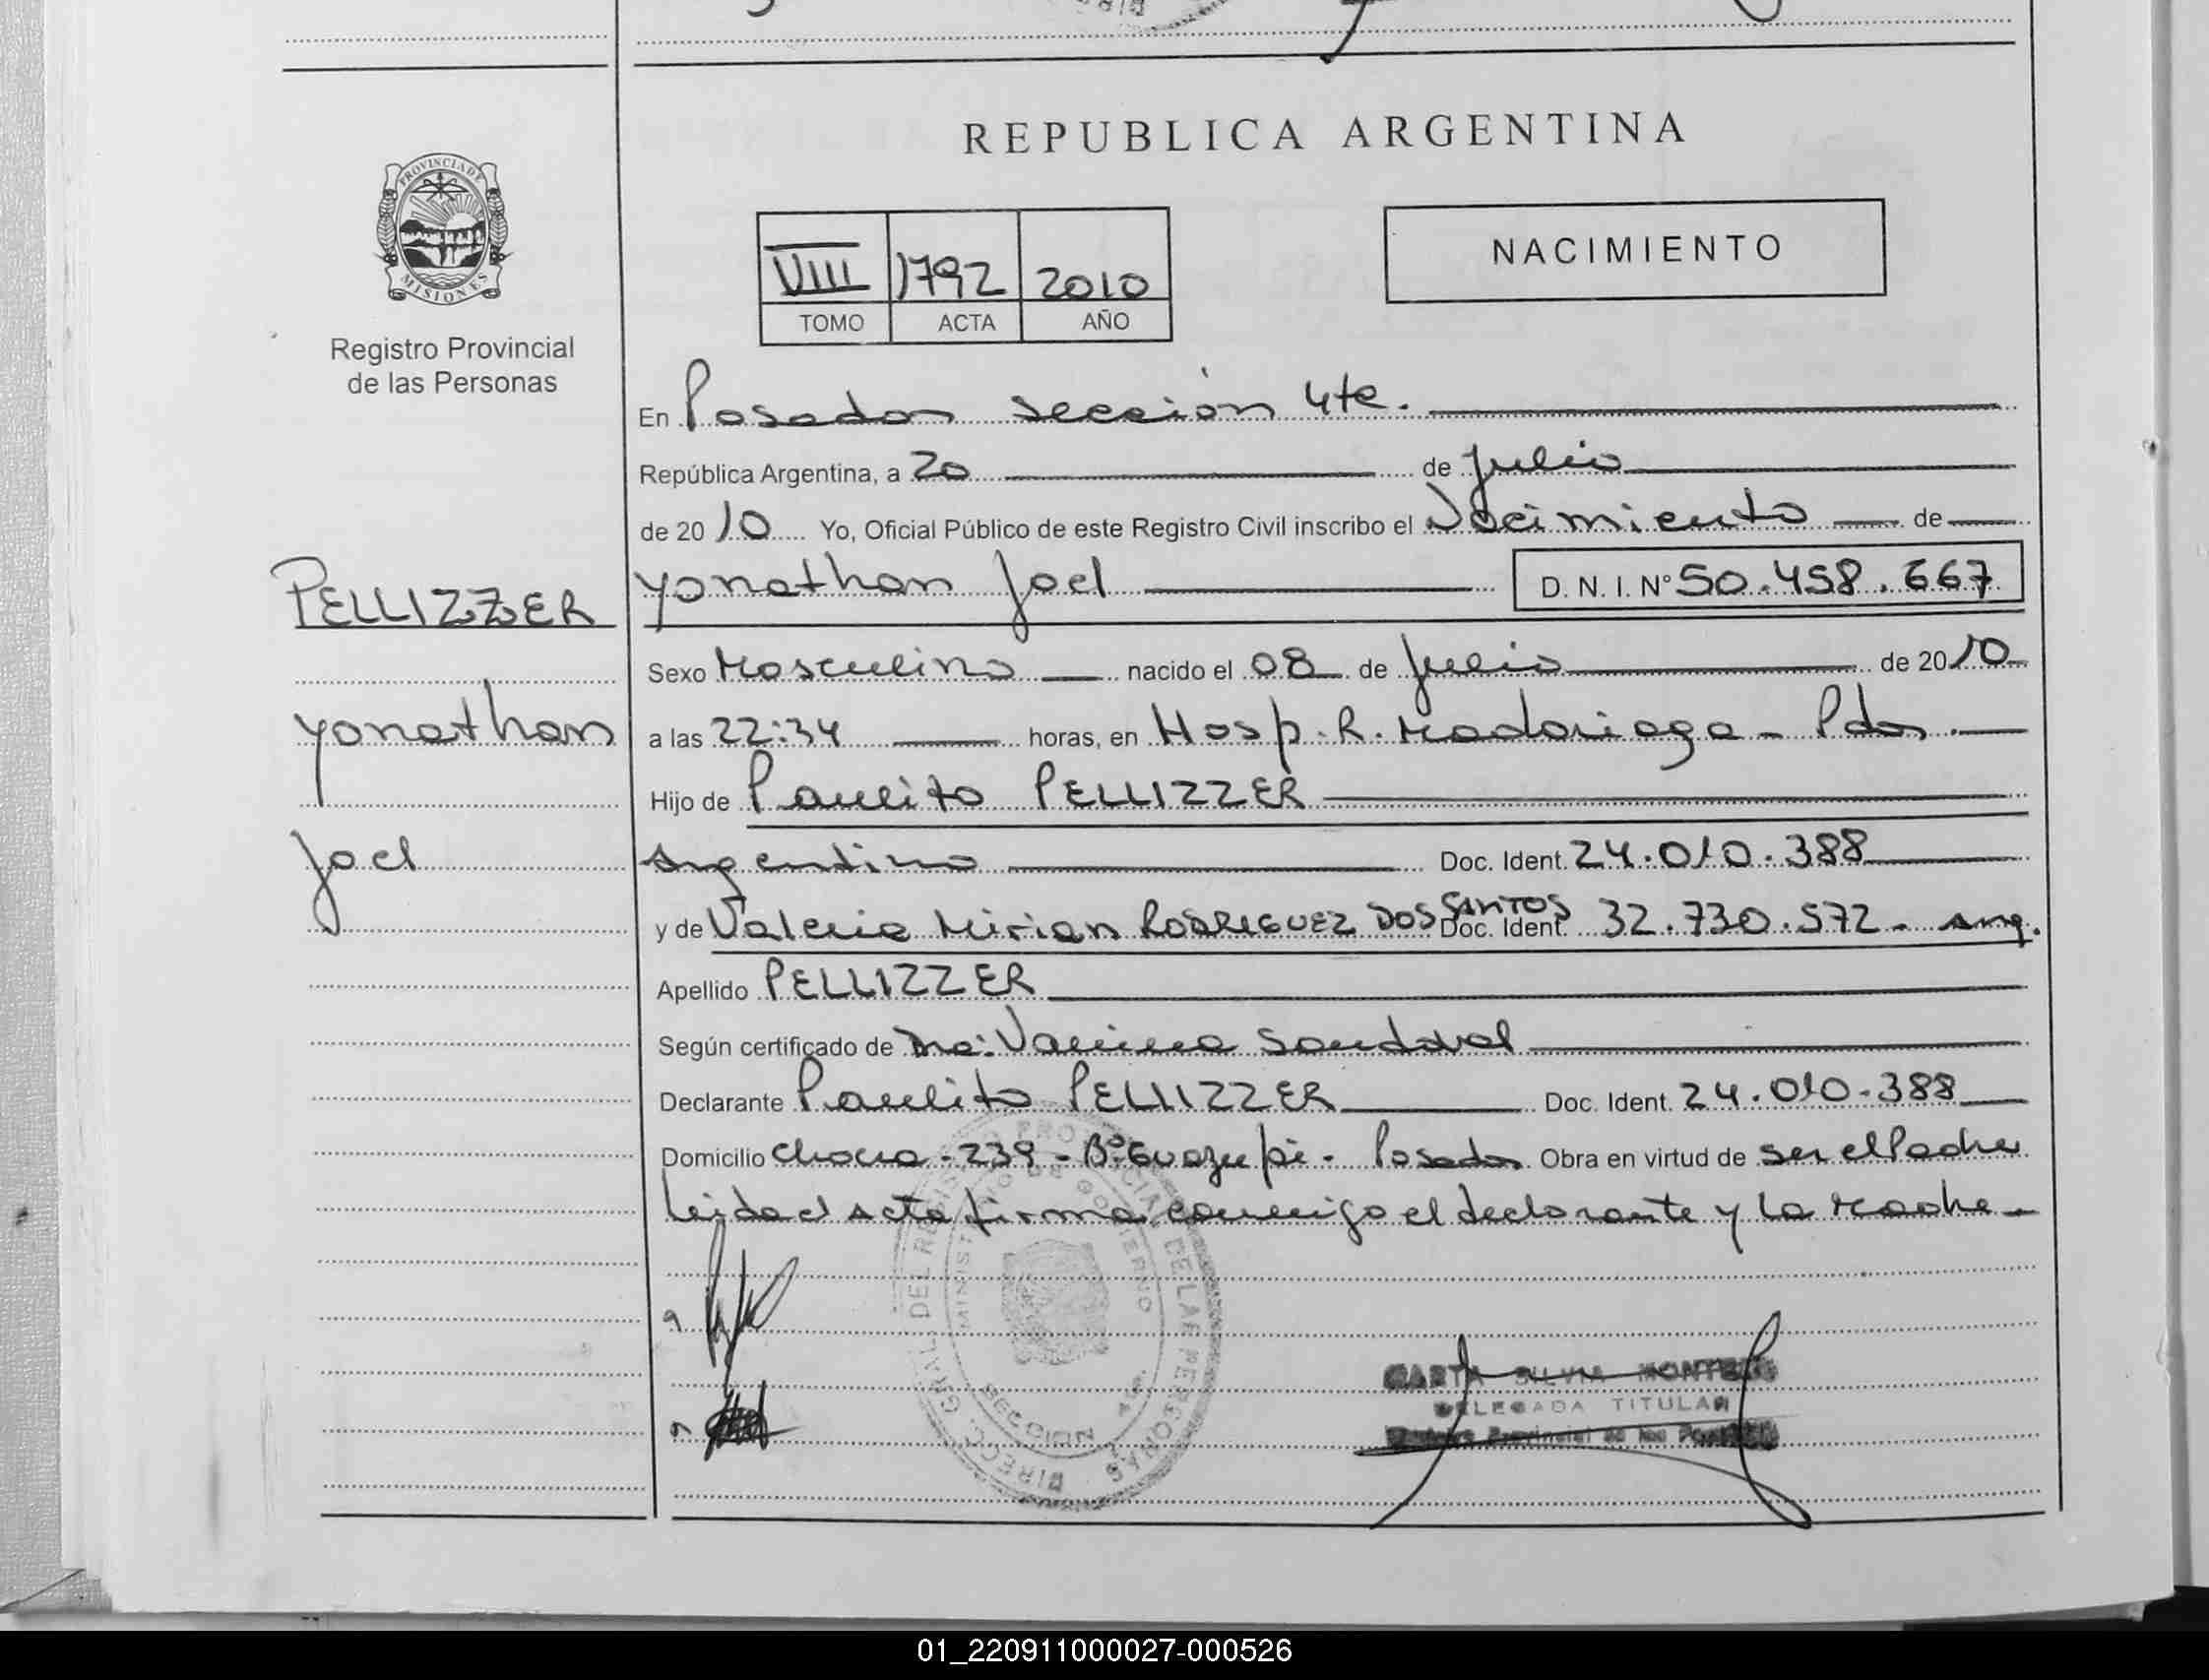 REPUBLICA ARGENTINA
PROVINCIA DE
MISIONES
Registro Provincial
de las Personas
VIII 1792 2010
TOMO ACTA AÑO
NACIMIENTO
En Posadas sección 4ta.
República Argentina, a 20 de Julio
de 2010 Yo, Oficial Público de este Registro Civil inscribo el Nacimiento de
PELLIZZER
Yonathan
Joel
Yonathan Joel D. N. I. N° 50.458.667
Sexo Masculino nacido el 08 de Julio de 2010
a las 22:34 horas, en Hosp. R. Madariaga - Pdas.
Hijo de Paulito PELLIZZER
Argentino Doc. Ident. 24.010.388
y de Valeria Mirian RODRIGUEZ DOS SANTOS Doc. Ident. 32.730.572 - Arg.
Apellido PELLIZZER
Según certificado de Dra: Vanina Sandoval
Declarante Paulito PELLIZZER Doc. Ident. 24.010.388
Domicilio - 239 - B° Guazupi - Posadas Obra en virtud de ser el Padre
Leida el Acta firma conmigo el declarante y la Madre -
DIRECC. GRAL. DEL REGISTRO PROVINCIAL DE LAS PERSONAS
MINISTERIO DE GOBIERNO
SECCION 4ta.
SILVIA
DELEGADA TITULAR
Provincial de las
01_220911000027-000526